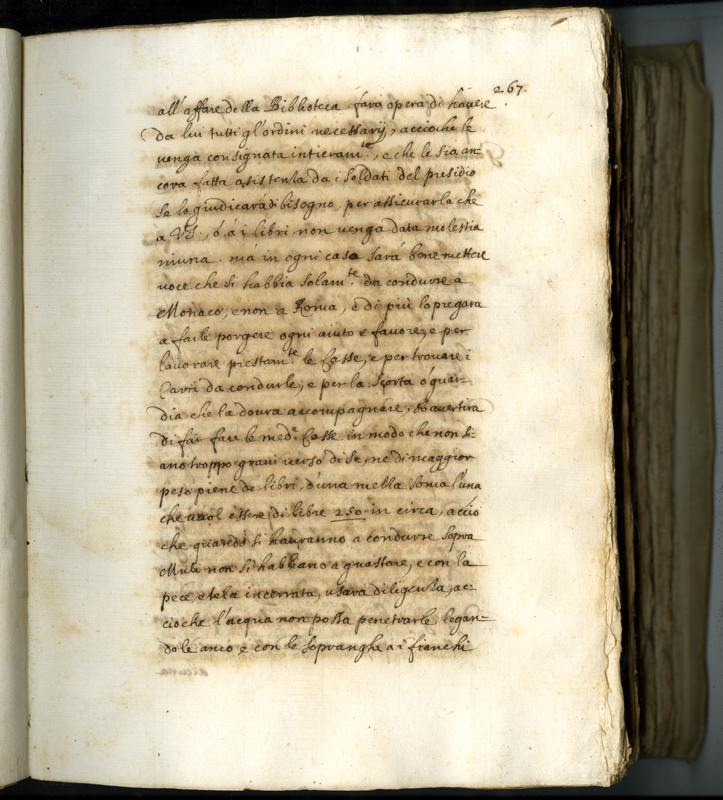 267.
all' affare della Biblioteca farà opera di havere
da lui tutti gl'ordini necessarij, accioche le
venga consignata intieram.te, e che le sia an-
cora fatta assistenza da i soldati del presidio
se lo giudicarà di bisogno, per assicurarla che
a VS., ò à i libri non venga data molestia
niuna. mà in ogni caso sarà bene mettere
voce che si habbia solam.te da condurre a
Monaco, e non a Roma, e di più lo pregarà
a farle porgere ogni aiuto e favore, e per
lavorare prestam.te le Casse, e per trovare i
Carri da condurle, e per la scorta ò guar-
dia che la dovrà accompagnare, Avvertirà
di far fare le med.e Casse in modo che non si-
ano troppo gravi verso di se, ne di maggior
peso piene de libri, d'una mezza soma l'una
che vuol essere di libre 250 in circa, acciò
che quando si hauranno a condurre sopra
Muli non si habbiano a guastare, e con la
pece, e tela incerata, userà diligenza, ac-
cioche l'acqua non possa penetrarle legan-
dole anco e con le sopranghe a i fianchi